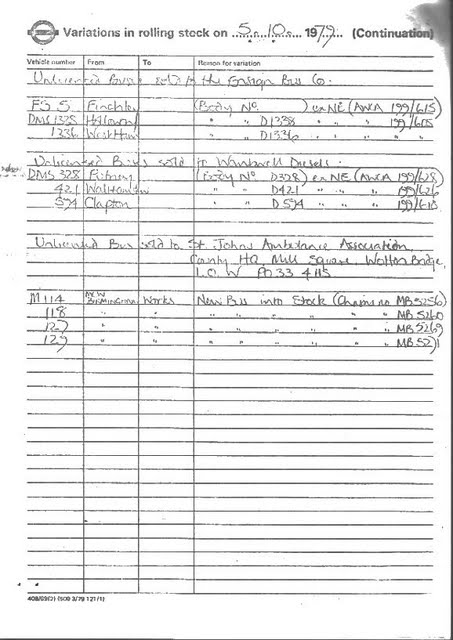 Variations in rolling stock on 5.10. 1979 (Continuation)
Vehicle number From To Reason for variation
Unlicenced Buses sold to the Ensign Bus Co.
FS 5 Finchley (Body No. ) ex NE (AWA 199/615)
DMS 1328 Holloway " " D1338 " " " 199/605
1336 West Ham " " D1336 " " " "
Unlicenced Buses sold to Wombwell Diesels.
DMS 328 Putney (Body No D328) ex NE (AWA 199/628)
421 Walthamstow " " D421 " " 199/626
594 Clapton " " D594 " " 199/618
Unlicenced Bus sold to St. Johns Ambulance Association,
County HQ, Mill Square, Wotton Bridge,
I.O.W PO33 4HS
M114 MCW BIRMINGHAM Works New Bus into Stock (Chassis no MB5256)
118 " " " " " " " " MB5260
127 " " " " " " " " MB5269
129 " " " " " " " " MB5271